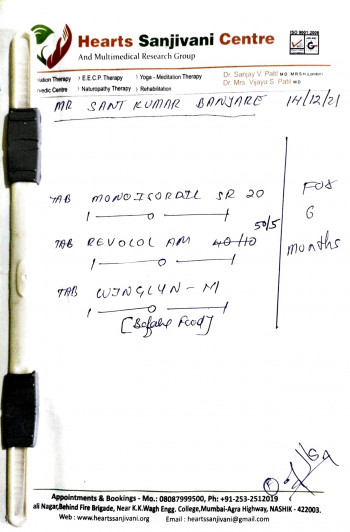 Hearts Sanjivani Centre
And Multimedical Research Group
ISO 9001:2008
Therapy › E.E.C.P. Therapy › Yoga - Meditation Therapy
Centre › Naturopathy Therapy › Rehabilitation
Dr. Sanjay V. Patil M.D. M.R.S.H. (London)
Dr. Mrs. Vijaya S. Patil M.D.
MR SANT KUMAR BANJARE 14/12/21
TAB MONOISORDIL SR 20
1 — 0 — 1
TAB REVOLOL AM 40/10 50/5
1 — 0 — 1
TAB WINGLYN - M
1 — 0 — 1
[Before Food]
FOR
6
months
Appointments & Bookings - Mo.: 08087999500, Ph: +91-253-2512019
ali Nagar,Behind Fire Brigade, Near K.K.Wagh Engg. College,Mumbai-Agra Highway, NASHIK - 422003.
Web : www.heartssanjivani.org Email : heartssanjivani@gmail.com